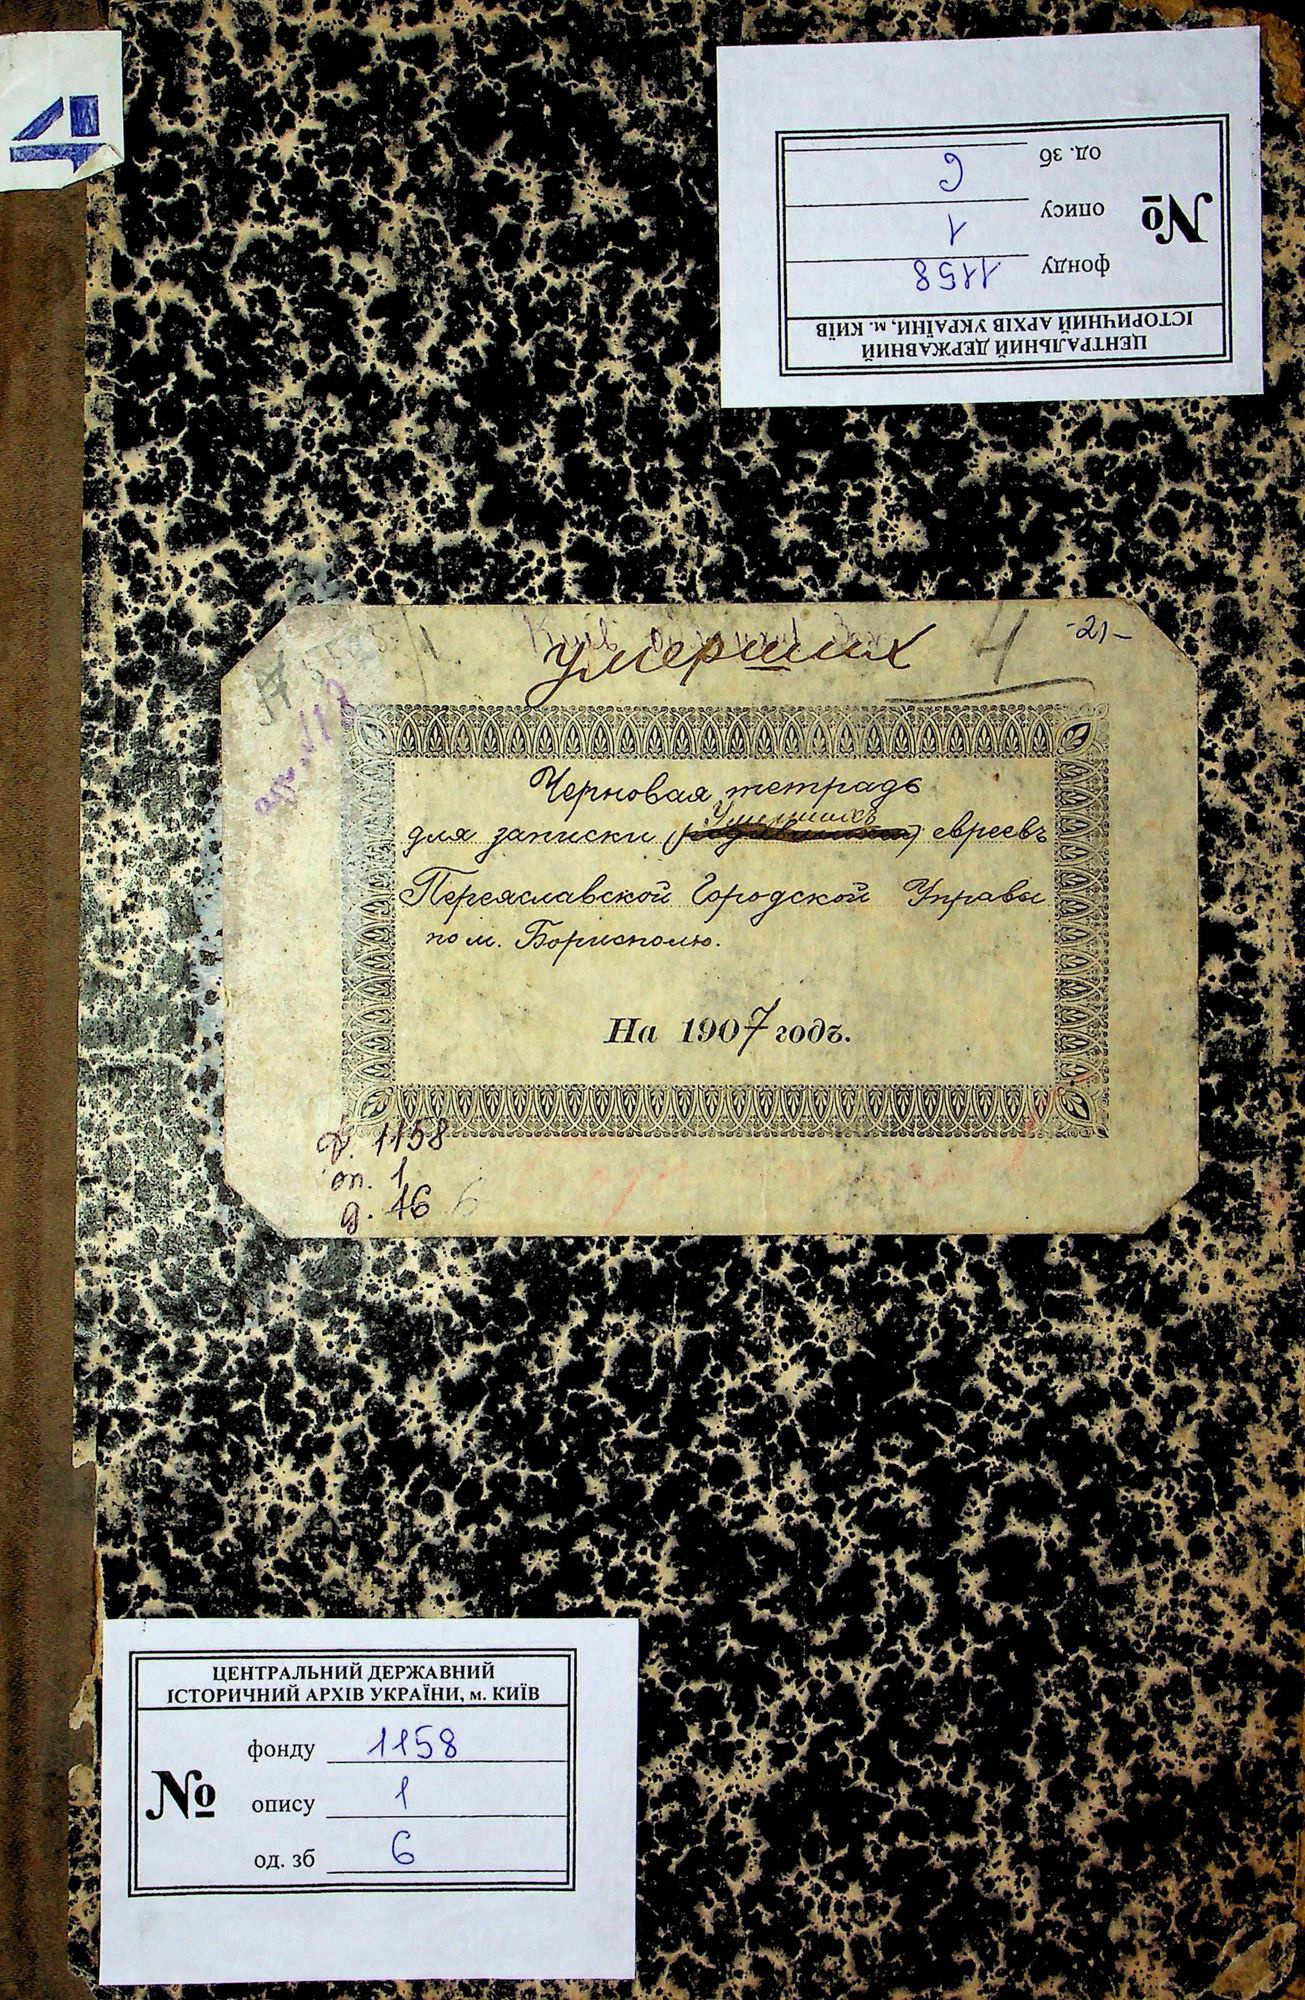 ЦЕНТРАЛЬНИЙ ДЕРЖАВНИЙ
ІСТОРИЧНИЙ АРХІВ УКРАЇНИ, м. КИЇВ
фонду 1158
№ опису 1
од. зб 6
умерших 4 -21-
Черновая тетрадь
Умершихъ
для записки евреевъ
Переяславской Городской Управы
по м. Борисполю.
На 1907 годъ.
ф. 1158
оп. 1
д. 16 6
ЦЕНТРАЛЬНИЙ ДЕРЖАВНИЙ
ІСТОРИЧНИЙ АРХІВ УКРАЇНИ, м. КИЇВ
фонду 1158
№ опису 1
од. зб 6